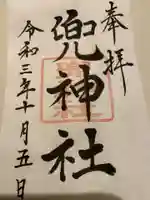 奉拝
兜神社
令和三年十月五日